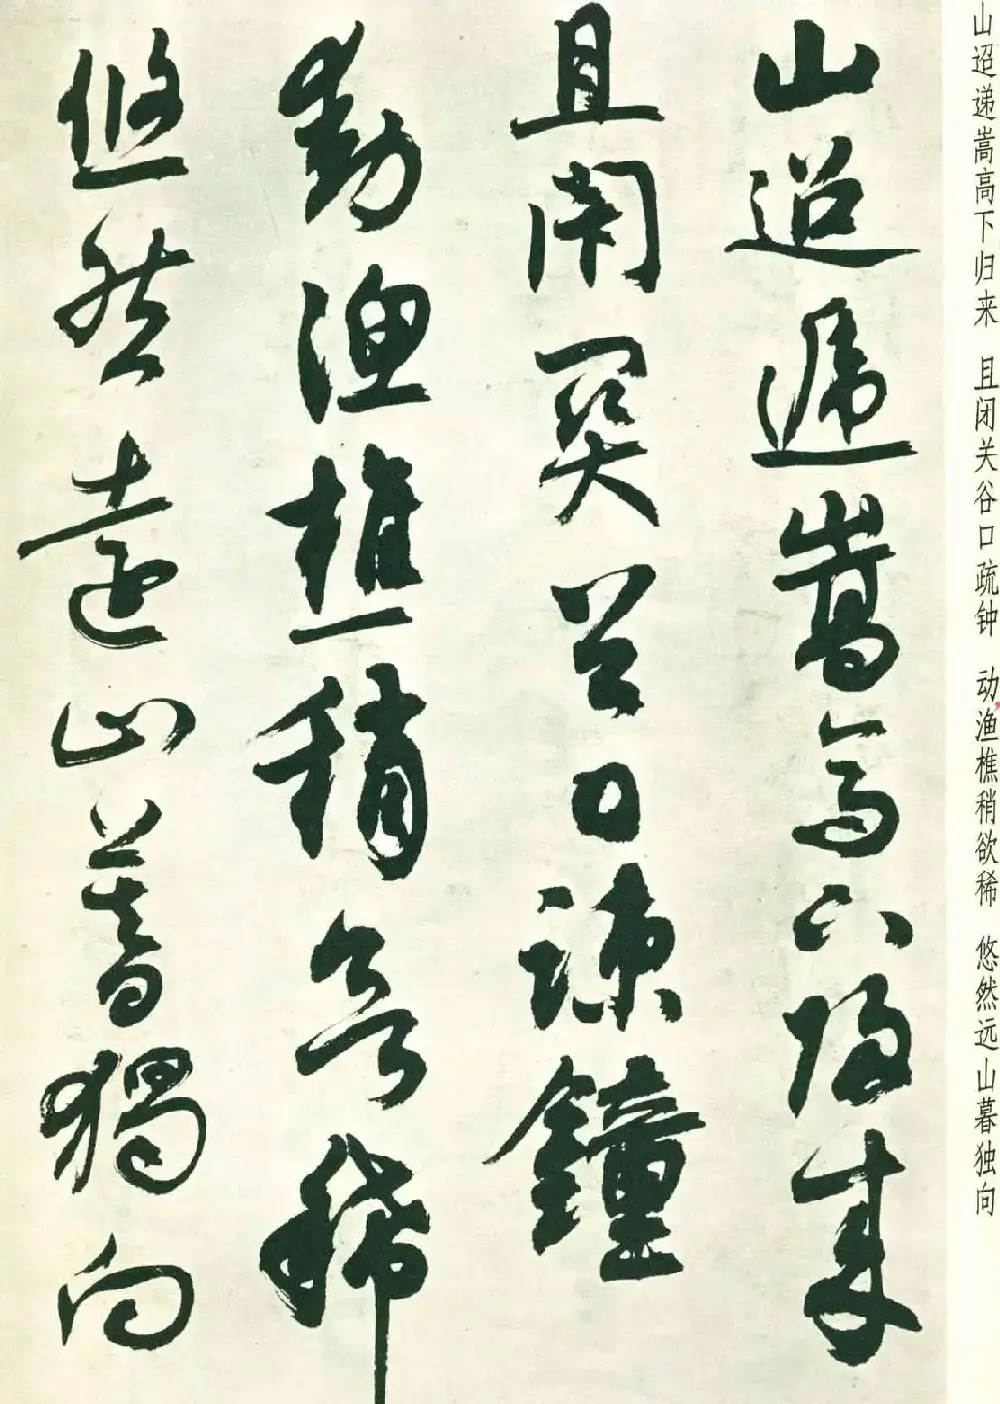 山迢递嵩高下归来 且闭关谷口疏钟 动渔樵稍欲稀 悠然远山暮独向
山迢遞嵩高下歸来
且閉關谷口疎鐘
動漁樵稍欲稀
悠然遠山暮獨向